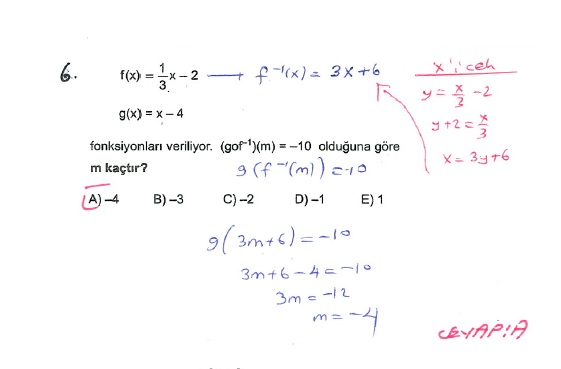 6.
f(x) = 1/3 x – 2 → f⁻¹(x) = 3x+6
g(x) = x – 4
fonksiyonları veriliyor. (gof⁻¹)(m) = –10 olduğuna göre
m kaçtır?
g(f⁻¹(m)) = -10
A) –4 B) –3 C) –2 D) –1 E) 1
g(3m+6) = -10
3m+6-4 = -10
3m = -12
m = -4
'x'i çek
y = x/3 -2
y+2 = x/3
x = 3y+6
CEVAP:A